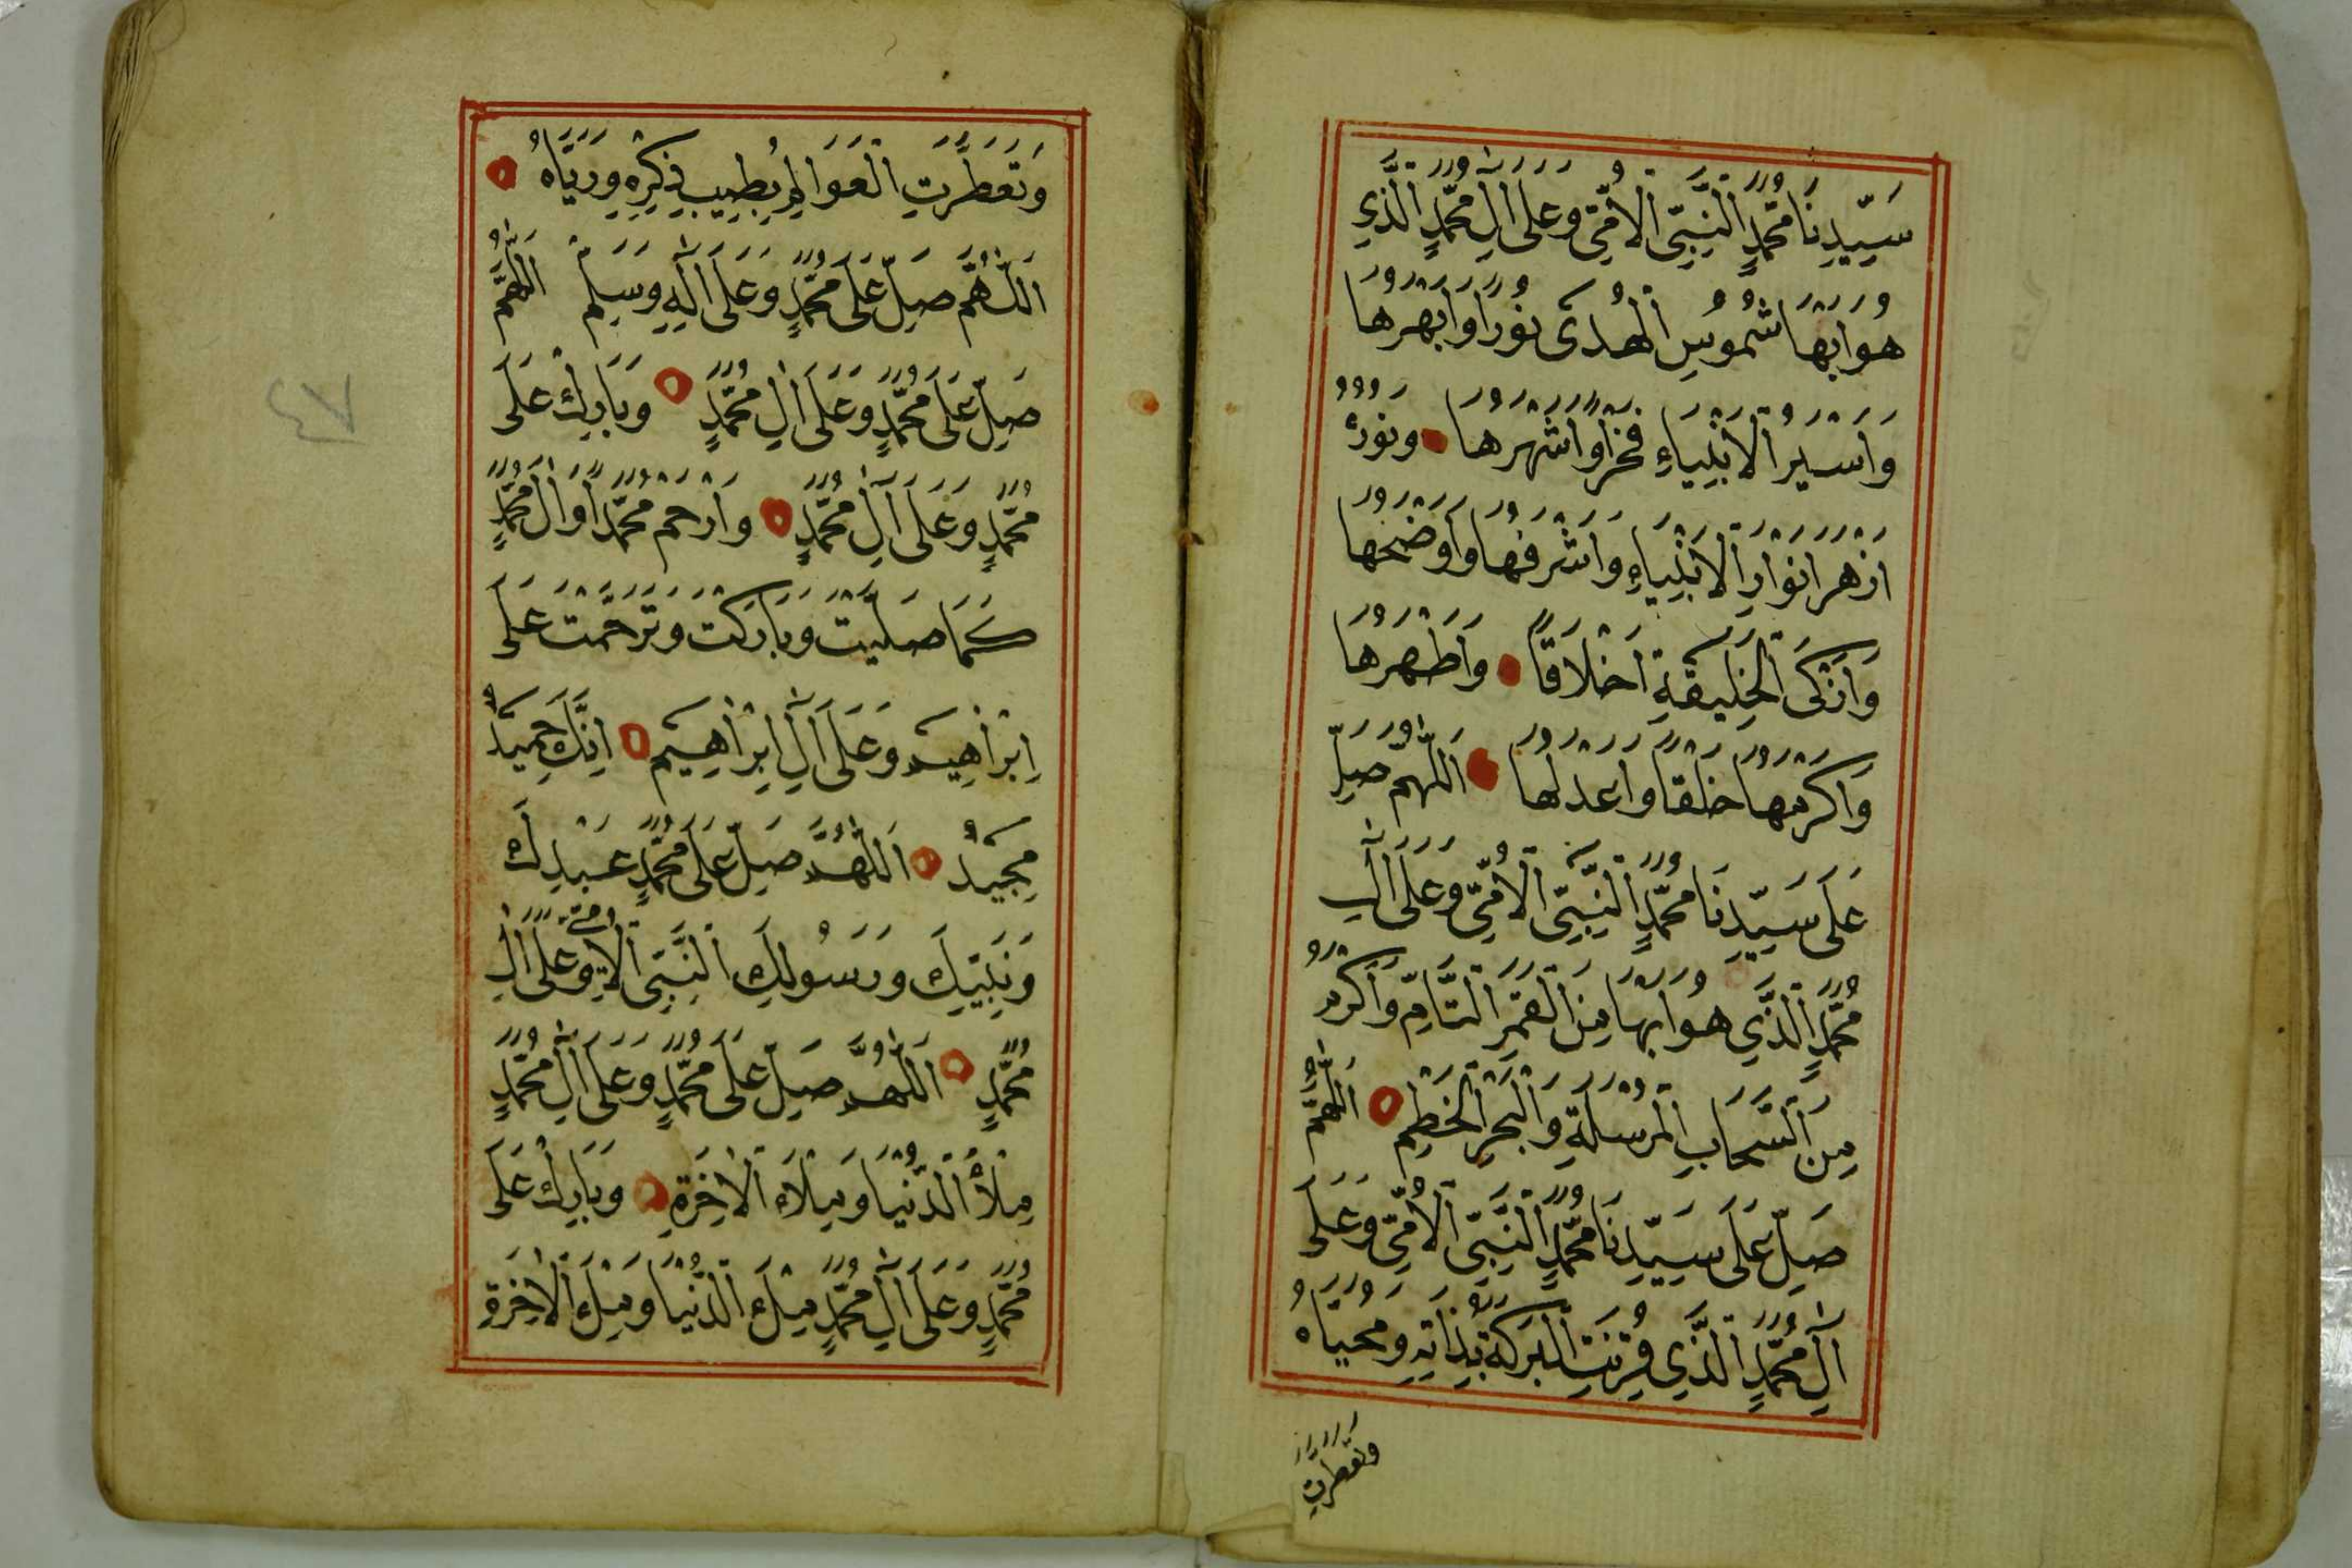 سَيِّدِنَا مُحَمَّدٍ النَّبِيِّ الْأُمِّيِّ وَعَلَى اٰلِ مُحَمَّدٍ الَّذِي
هُوَ اَبْهَا شُمُوسِ الْهُدَى نُورًا وَاَبْهَرُهَا
وَاَسْيَرُ الْاَنْبِيَاءِ فَخْرًا وَاَشْهَرُهَا وَنُورُهُ
اَزْهَرُ اَنْوَارِ الْاَنْبِيَاءِ وَاَشْرَفُهَا وَاَوْضَحُهَا
وَاَزْكَى الْخَلِيقَةِ اَخْلَاقًا وَاَطْهَرُهَا
وَاَكْرَمُهَا خَلْقًا وَاَعْدَلُهَا اَللّٰهُمَّ صَلِّ
عَلَى سَيِّدِنَا مُحَمَّدٍ النَّبِيِّ الْاُمِّيِّ وَعَلَى اٰلِ
مُحَمَّدٍ الَّذِي هُوَ اَبْهَا مِنَ الْقَمَرِ التَّامِّ وَاَكْرَمُ
مِنَ السَّحَابِ الْمُرْسَلَةِ وَالْبَحْرِ الْخَطِمِ اَللّٰهُمَّ
صَلِّ عَلَى سَيِّدِنَا مُحَمَّدٍ النَّبِيِّ الْاُمِّيِّ وَعَلَى
اٰلِ مُحَمَّدٍ الَّذِي قُرِنَتِ الْبَرَكَةُ بِذَاتِهِ وَمُحَيَّاهُ
وتعطرت
وَتَعَطَّرَتِ الْعَوَالِمُ بِطِيبِ ذِكْرِهِ وَرَيَّاهُ
اَللّٰهُمَّ صَلِّ عَلَى مُحَمَّدٍ وَعَلَى اٰلِهِ وَسَلِّمْ اَللّٰهُمَّ
صَلِّ عَلَى مُحَمَّدٍ وَعَلَى اٰلِ مُحَمَّدٍ وَبَارِكْ عَلَى
مُحَمَّدٍ وَعَلَى اٰلِ مُحَمَّدٍ وَارْحَمْ مُحَمَّدًا وَاٰلَ مُحَمَّدٍ
كَمَا صَلَّيْتَ وَبَارَكْتَ وَتَرَحَّمْتَ عَلَى
اِبْرَاهِيمَ وَعَلَى اٰلِ اِبْرَاهِيمَ اِنَّكَ حَمِيدٌ
مَجِيدٌ اَللّٰهُمَّ صَلِّ عَلَى مُحَمَّدٍ عَبْدِكَ
وَنَبِيِّكَ وَرَسُولِكَ النَّبِيِّ الْاُمِّيِّ وَعَلَى اٰلِ
مُحَمَّدٍ اَللّٰهُمَّ صَلِّ عَلَى مُحَمَّدٍ وَعَلَى اٰلِ مُحَمَّدٍ
مِلْأَ الدُّنْيَا وَمِلْاَءَ الْاٰخِرَةِ وَبَارِكْ عَلَى
مُحَمَّدٍ وَعَلَى اٰلِ مُحَمَّدٍ مِلْءَ الدُّنْيَا وَمِلْءَ الْاٰخِرَةِ